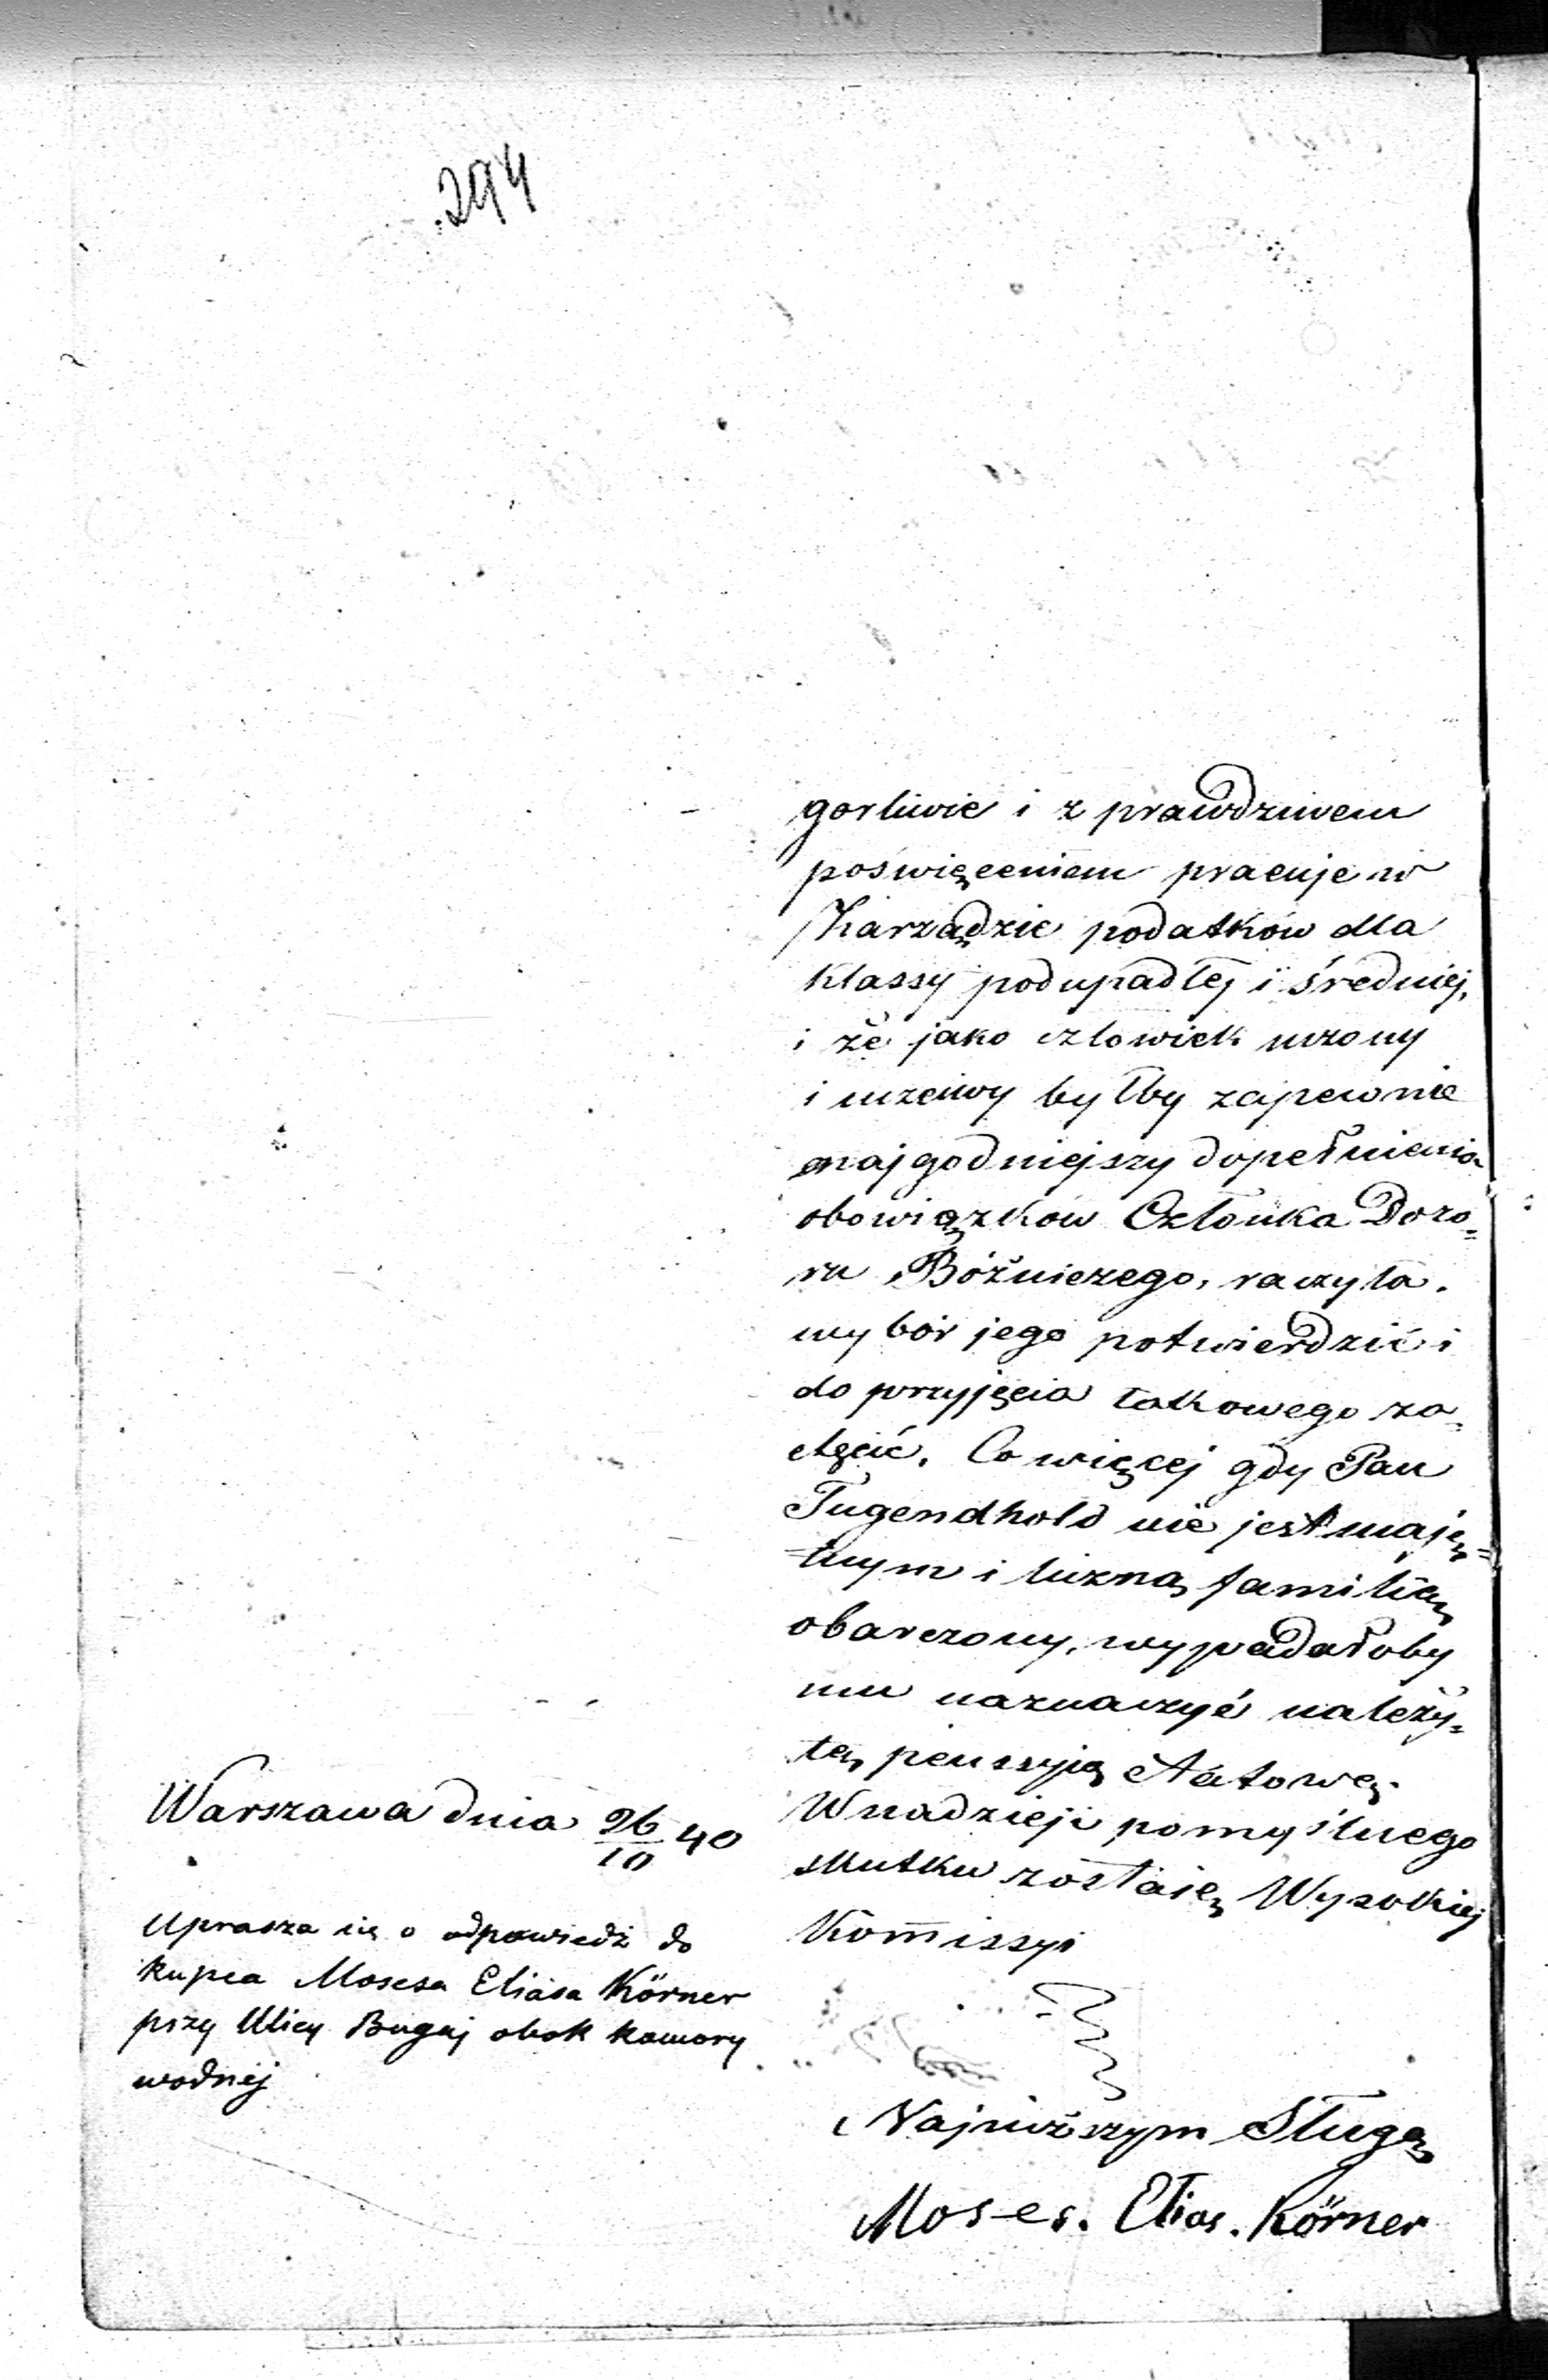 294
gorliwie i z prawdziwem
poświęceniem pracuje w
Zarządzie podatków dla
klassy podupadłej i średniej,
i że jako człowiek uczony
i uczciwy byłby zapewnie
najgodniejszy dopełnienia
obowiązków Członka Dozo=
ru Bóżniczego, raczyła
wybór jego potwierdzić i
do przyjęcia takowego za=
chęcić. Co więcej gdy Pan
Tugendhold nie jest maję=
tnym i liczną familią
obarczony, wypadałoby
mu naznaczyć należy=
tą penssyią Etatową.
W nadzieji pomyślnego
skutku zostaię Wysokiej
Kommissyi
Najniższym Sługą
Moses. Elias. Körner
Warszawa dnia 26/10 40
Uprasza się o odpowiedź do
kupca Mosesa Eliasa Körner
przy Ulicy Bugaj obok komory
wodnéj